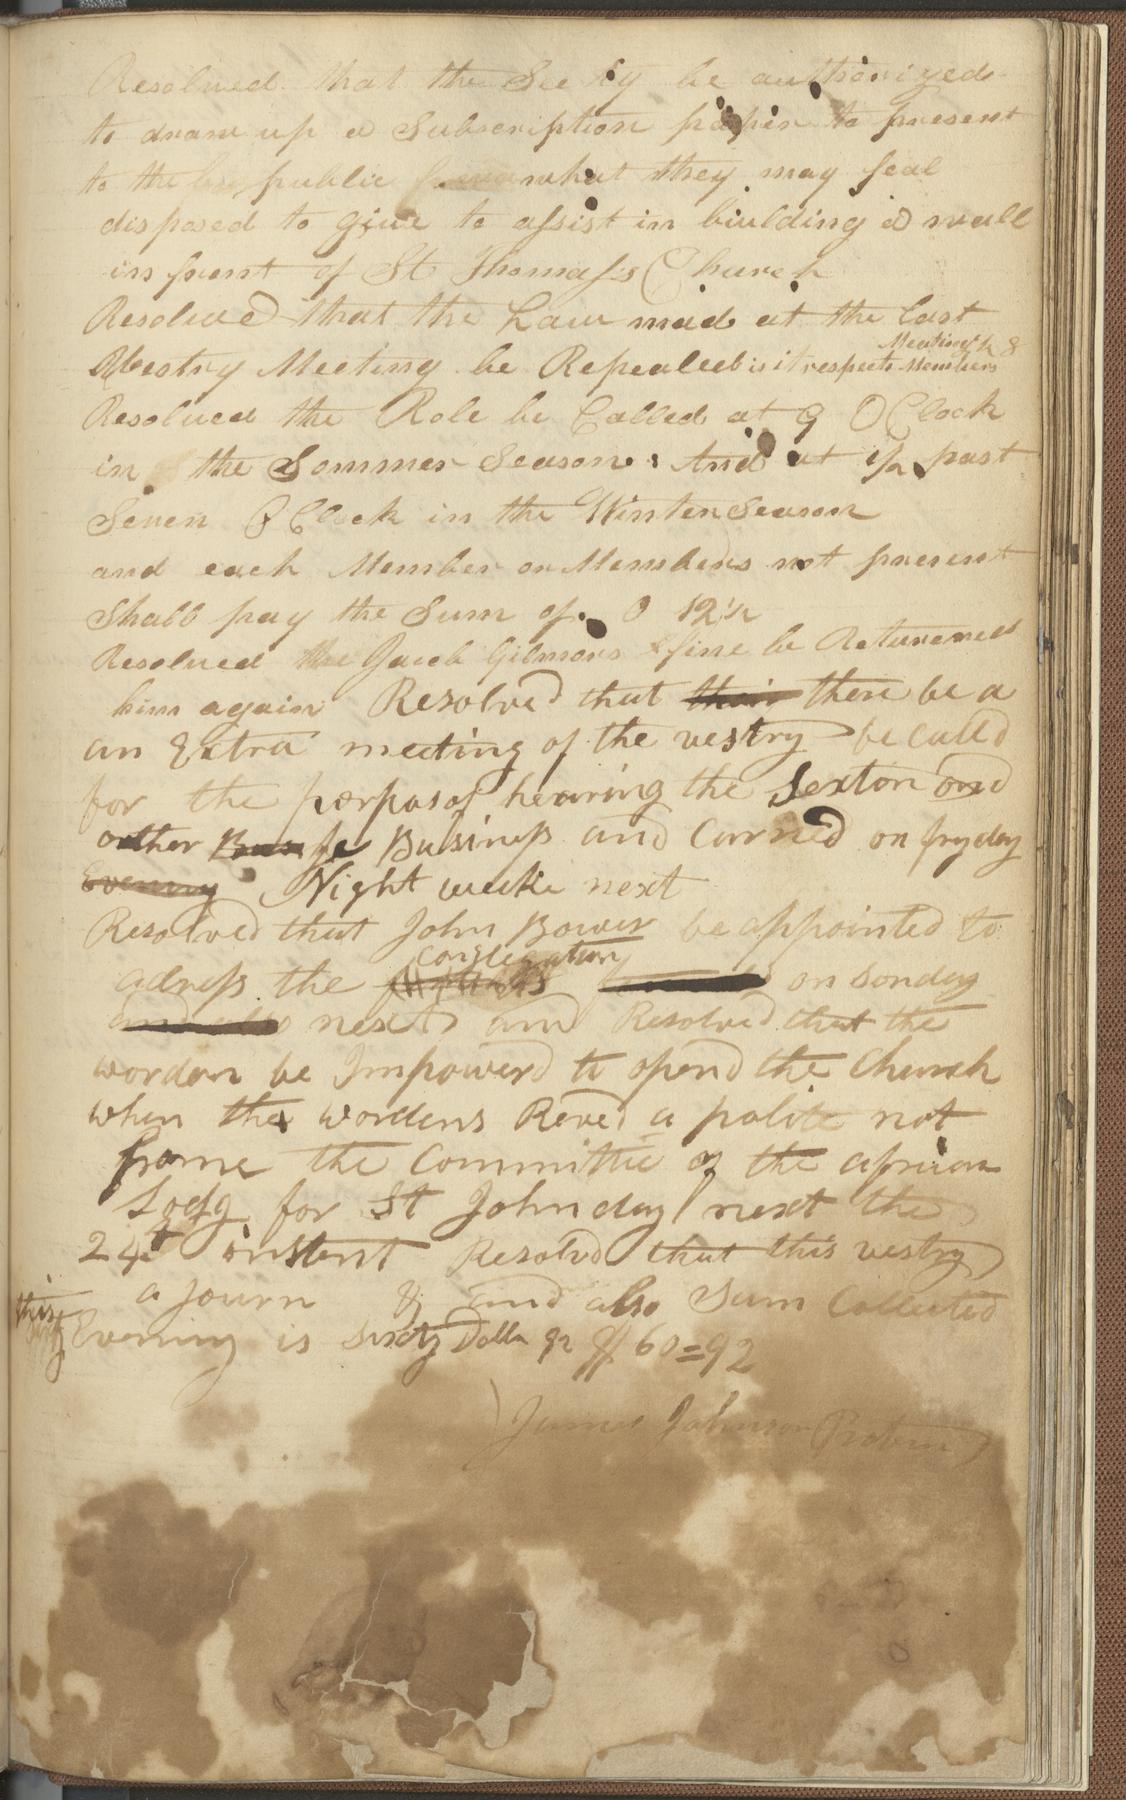 Resolved that the Sec ty be authorized
to draw up a Subscription paper to present
to the public what they may feal
disposed to give to assist in biulding a wall
in front of St Thomass Church
Resolved that the Law mad at the Last
Meating &
Vestry Meeting be Repealed as it respects Members
Resolved the Role be Called at 9 OClock
in the Sommer Season And at 1/2 past
Seven OClock in the Winter Season
and each Member or Members not present
Shall pay the Sum of 0 12 1/2
Resolved the Jacob Gilmors fine be Returened
him again Resolved that their there be a
an Extra meeting of the vestry be called
for the porpasof hearing the Sexton and
outher Busife Bulsiness and Carried on fryday
Evening Night weeke next
Resolved that John Bower be appointed to
Congregation
adress the on Sonday
and also next and Resolved that the
wordon be Impowerd to opend the Church
when the wordens Reved a polite not
frome the Committie of the african
Lodg for St John day next the
24t instent Resolved that this vestry
a Journ & and also Sum Collected
this Evening is Sixty Dolla 92 $ 60=92
James Johnson